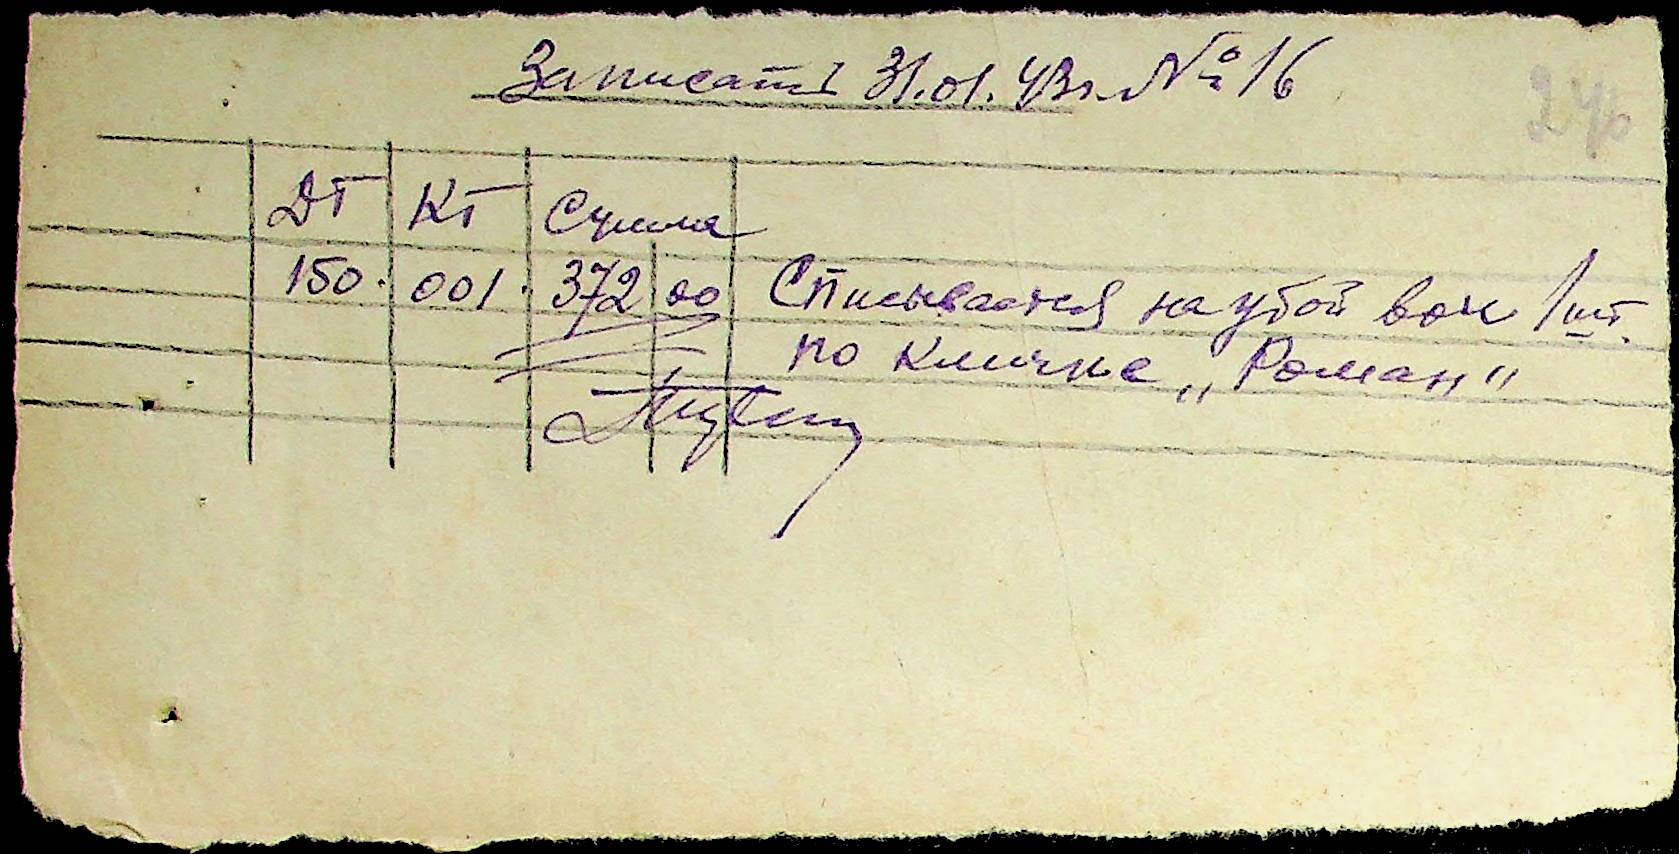 Записать 31.01.43г. № 16
246
Дт Кт Сумма
150. 001. 372 00 Списывается на убой вол 1 шт.
по кличке „Роман"